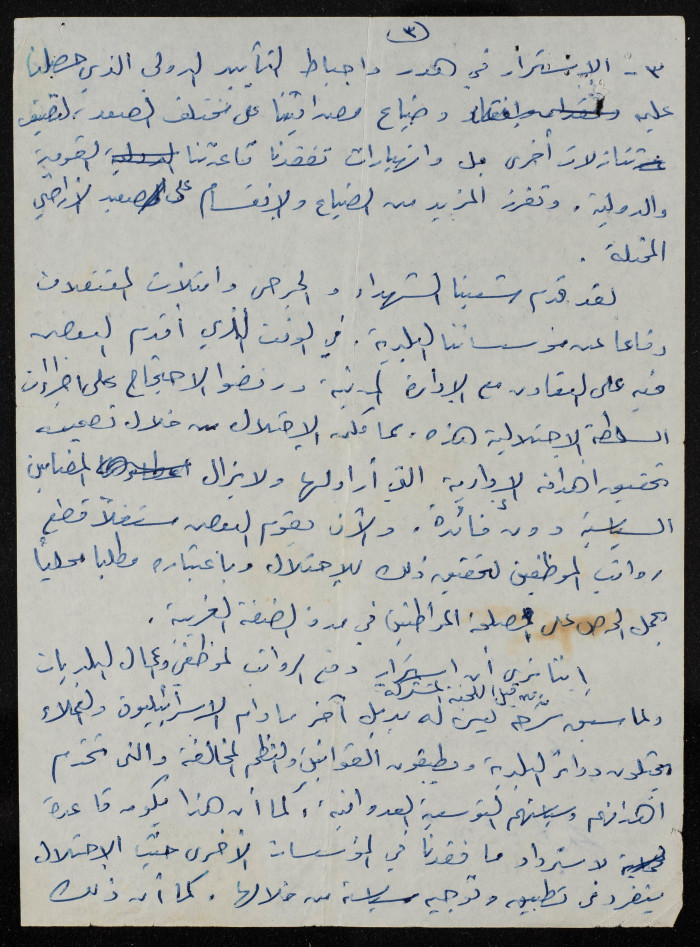 (٣)
٣ - الاستمرار في هدر واحباط التأييد الدولي الذي حصلنا
عليه وضياع مصداقيتنا على مختلف الصعد،
تنازلات أخرى بل وانهيارات تفقدنا قاعدتنا الدولية القومية
والدولية. وتفرز المزيد من الضياع والانقسام على صعيد الأراضي
المحتلة.
لقد قدم شعبنا الشهداء والجرحى وامتلأت المعتقلات
دفاعا عن مؤسساتنا البلدية. في الوقت الذي أقدم البعض
فيه على التعاون مع الإدارة المدنية ورفضوا الاحتجاج على إجراءات
السلطة الاحتلالية هذه. مما مكن الاحتلال من خلال تصعيده
تحقيق أهدافه الإدارية التي أرادها ولا يزال المضامين
السياسية دون فائدة. والآن يقوم البعض مستغلاً قطع
رواتب الموظفين لتحقيق ذلك للاحتلال وباعتباره مطلبا محلياً
يحمل الحرص على مصلحة المواطنين في مدن الضفة الغربية.
إننا نرى أن استمرار دفع الرواتب لموظفي وعمال البلديات
من قبل اللجنة المشتركة
ولما سبق شرحه ليس له بديل آخر ما دام الاسرائيليون والعملاء
يحتلون دوائر البلدية ويطبقون القوانين والنظم المخالفة والتي تخدم
أهدافهم وسياستهم التوسعية العدوانية، كما أن هذا يكون قاعدة
لاسترداد ما فقدنا في المؤسسات الأخرى حيث الاحتلال
ينفرد في تطبيق وتوجيه سياسته من خلالها. كما أن ذلك